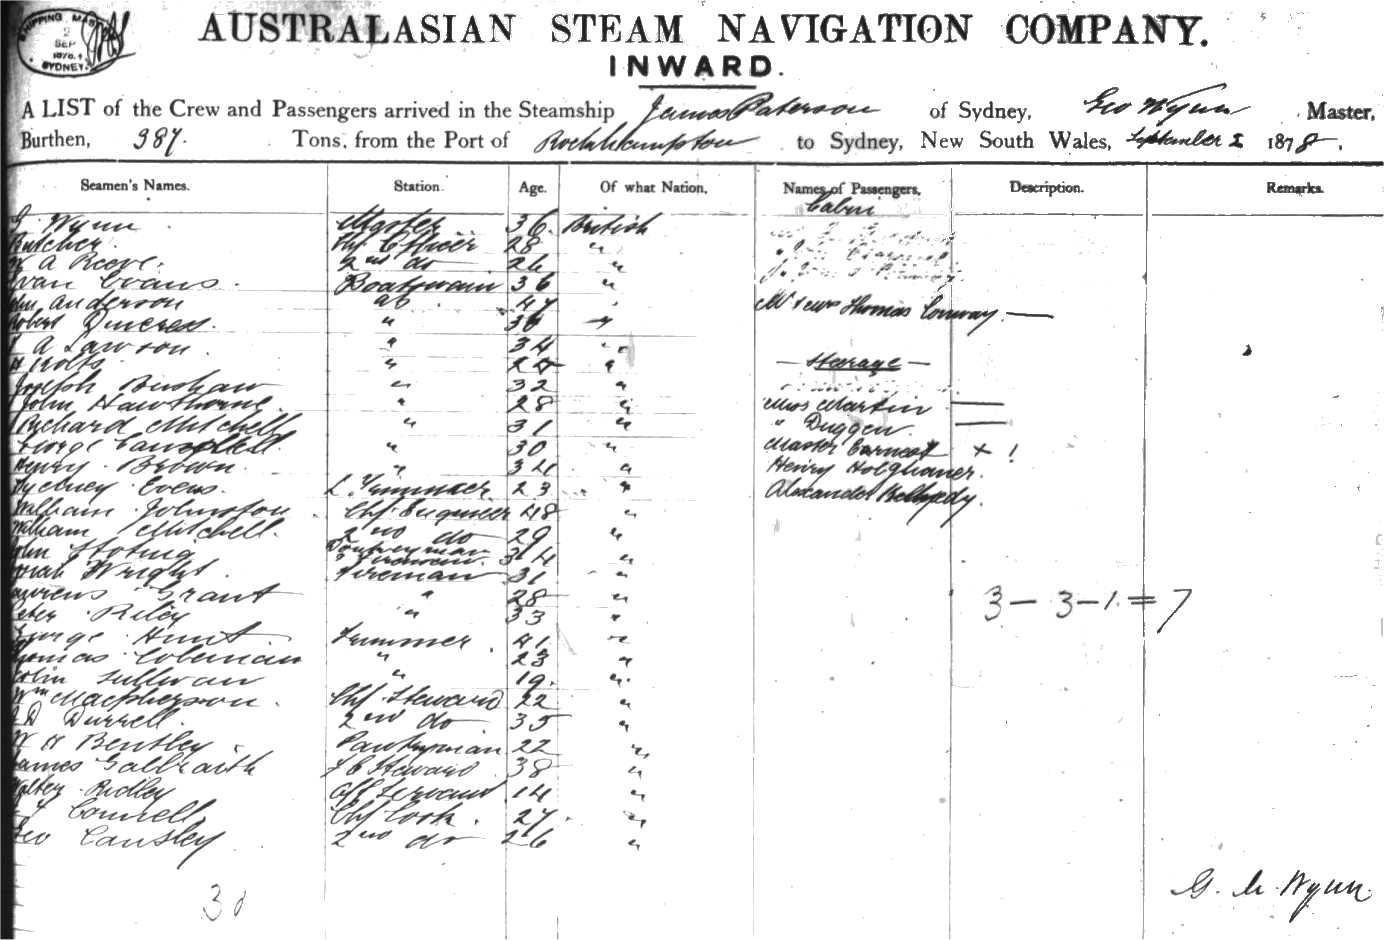 SHIPPING MASTER
2
SEP
1878
SYDNEY
AUSTRALASIAN STEAM NAVIGATION COMPANY.
INWARD.
A LIST of the Crew and Passengers arrived in the Steamship James Paterson of Sydney, Geo Wynn Master,
Burthen, 987. Tons, from the Port of Rockhampton to Sydney, New South Wales, September 2 1878.
Seamen's Names. Station. Age. Of what Nation. Names of Passengers, Description. Remarks.
Cabin
G Wynn Master 36. British
Butcher. Chf Officer 28 "
W A Reeve. 2nd do 26 "
Evan Evans. Boatswain 36 "
John Anderson ab 47 "
Mr & Mrs Thomas Conway. —
Robert 36 "
A Lawson. " 34 "
H Holts. " "
— Steerage —
Joseph Bushaw " 32 "
John Hawthorne. " 28 "
Miss Martin —
Richard Mitchell " 31 "
" Duggen —
George Campbell. " 30 "
Master Earnest + !
Henry Brown. " 34 "
Henry
Sydney Evens. L. Trimmer 23 "
Alexander
William Johnston Chf Engineer 48 "
William Mitchell. 2nd do 29 "
John Donkeyman & Fireman. 34 "
Wright. Fireman 31 "
Grant " 28 "
Peter Riley " 33 "
George Hunt Trimmer. 41 "
3 – 3 – 1. = 7
Thomas Coleman " 23 "
Colin Sullivan " 19. "
Wm Macpherson. Chf Steward 22 "
D Durrell. 2nd do 35 "
W H Bentley Pantryman 22 "
James Galbraith F C Steward 38 "
Walter Ridley Off Servant 14 "
Connell, Chf Cook. 27. "
Geo Cansley 2nd do 26 "
30
G. Wynn.